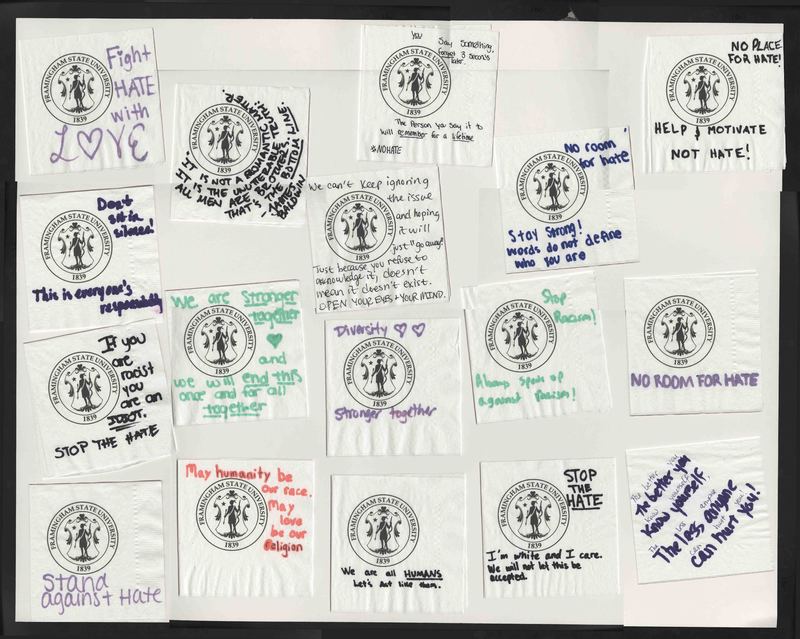 Fight
HATE
with
L♡VE
FRAMINGHAM STATE UNIVERSITY
1839
IT IS NOT A ROMANTIC MATTER.
IT IS THE UNUTTERABLE TRUTH:
ALL MEN ARE BROTHERS.
THAT'S THE BOTTOM LINE.
- JAMES BALDWIN
FRAMINGHAM STATE UNIVERSITY
1839
You Say Something,
forget 3 seconds
later.
FRAMINGHAM STATE UNIVERSITY
1839
The Person you say it to
will remember for a lifetime
#NOHATE
No room
for hate
FRAMINGHAM STATE UNIVERSITY
1839
Stay Strong!
Words do not define
who you are
NO PLACE
FOR HATE!
FRAMINGHAM STATE UNIVERSITY
1839
HELP & MOTIVATE
NOT HATE!
Don't
sit in
silence!
FRAMINGHAM STATE UNIVERSITY
1839
This is everyone's
responsibility
We can't keep ignoring
the issue
and hoping
it will
just "go away"
FRAMINGHAM STATE UNIVERSITY
Just because you refuse to
acknowledge it, doesn't
mean it doesn't exist.
OPEN YOUR EYES + YOUR MIND.
We are stronger
together
♥
and
FRAMINGHAM STATE UNIVERSITY
we will end this
once and for all
together
Diversity ♡ ♡
FRAMINGHAM STATE UNIVERSITY
1839
Stronger together
Stop
Racism!
FRAMINGHAM STATE UNIVERSITY
1839
Always speak up
against Racism!
FRAMINGHAM STATE UNIVERSITY
1839
NO ROOM FOR HATE
If you
are
racist
you
are an
IDIOT.
FRAMINGHAM STATE UNIVERSITY
1839
STOP THE HATE
May humanity be
our race.
May
love
be our
religion
FRAMINGHAM STATE UNIVERSITY
1839
FRAMINGHAM STATE UNIVERSITY
1839
We are all HUMANS
Let's Act like them.
STOP
THE
HATE
FRAMINGHAM STATE UNIVERSITY
1839
I'm white and I care.
We will not let this be
accepted.
The better you
know yourself,
The less anyone
can hurt you!
FRAMINGHAM STATE UNIVERSITY
1839
Stand
against Hate